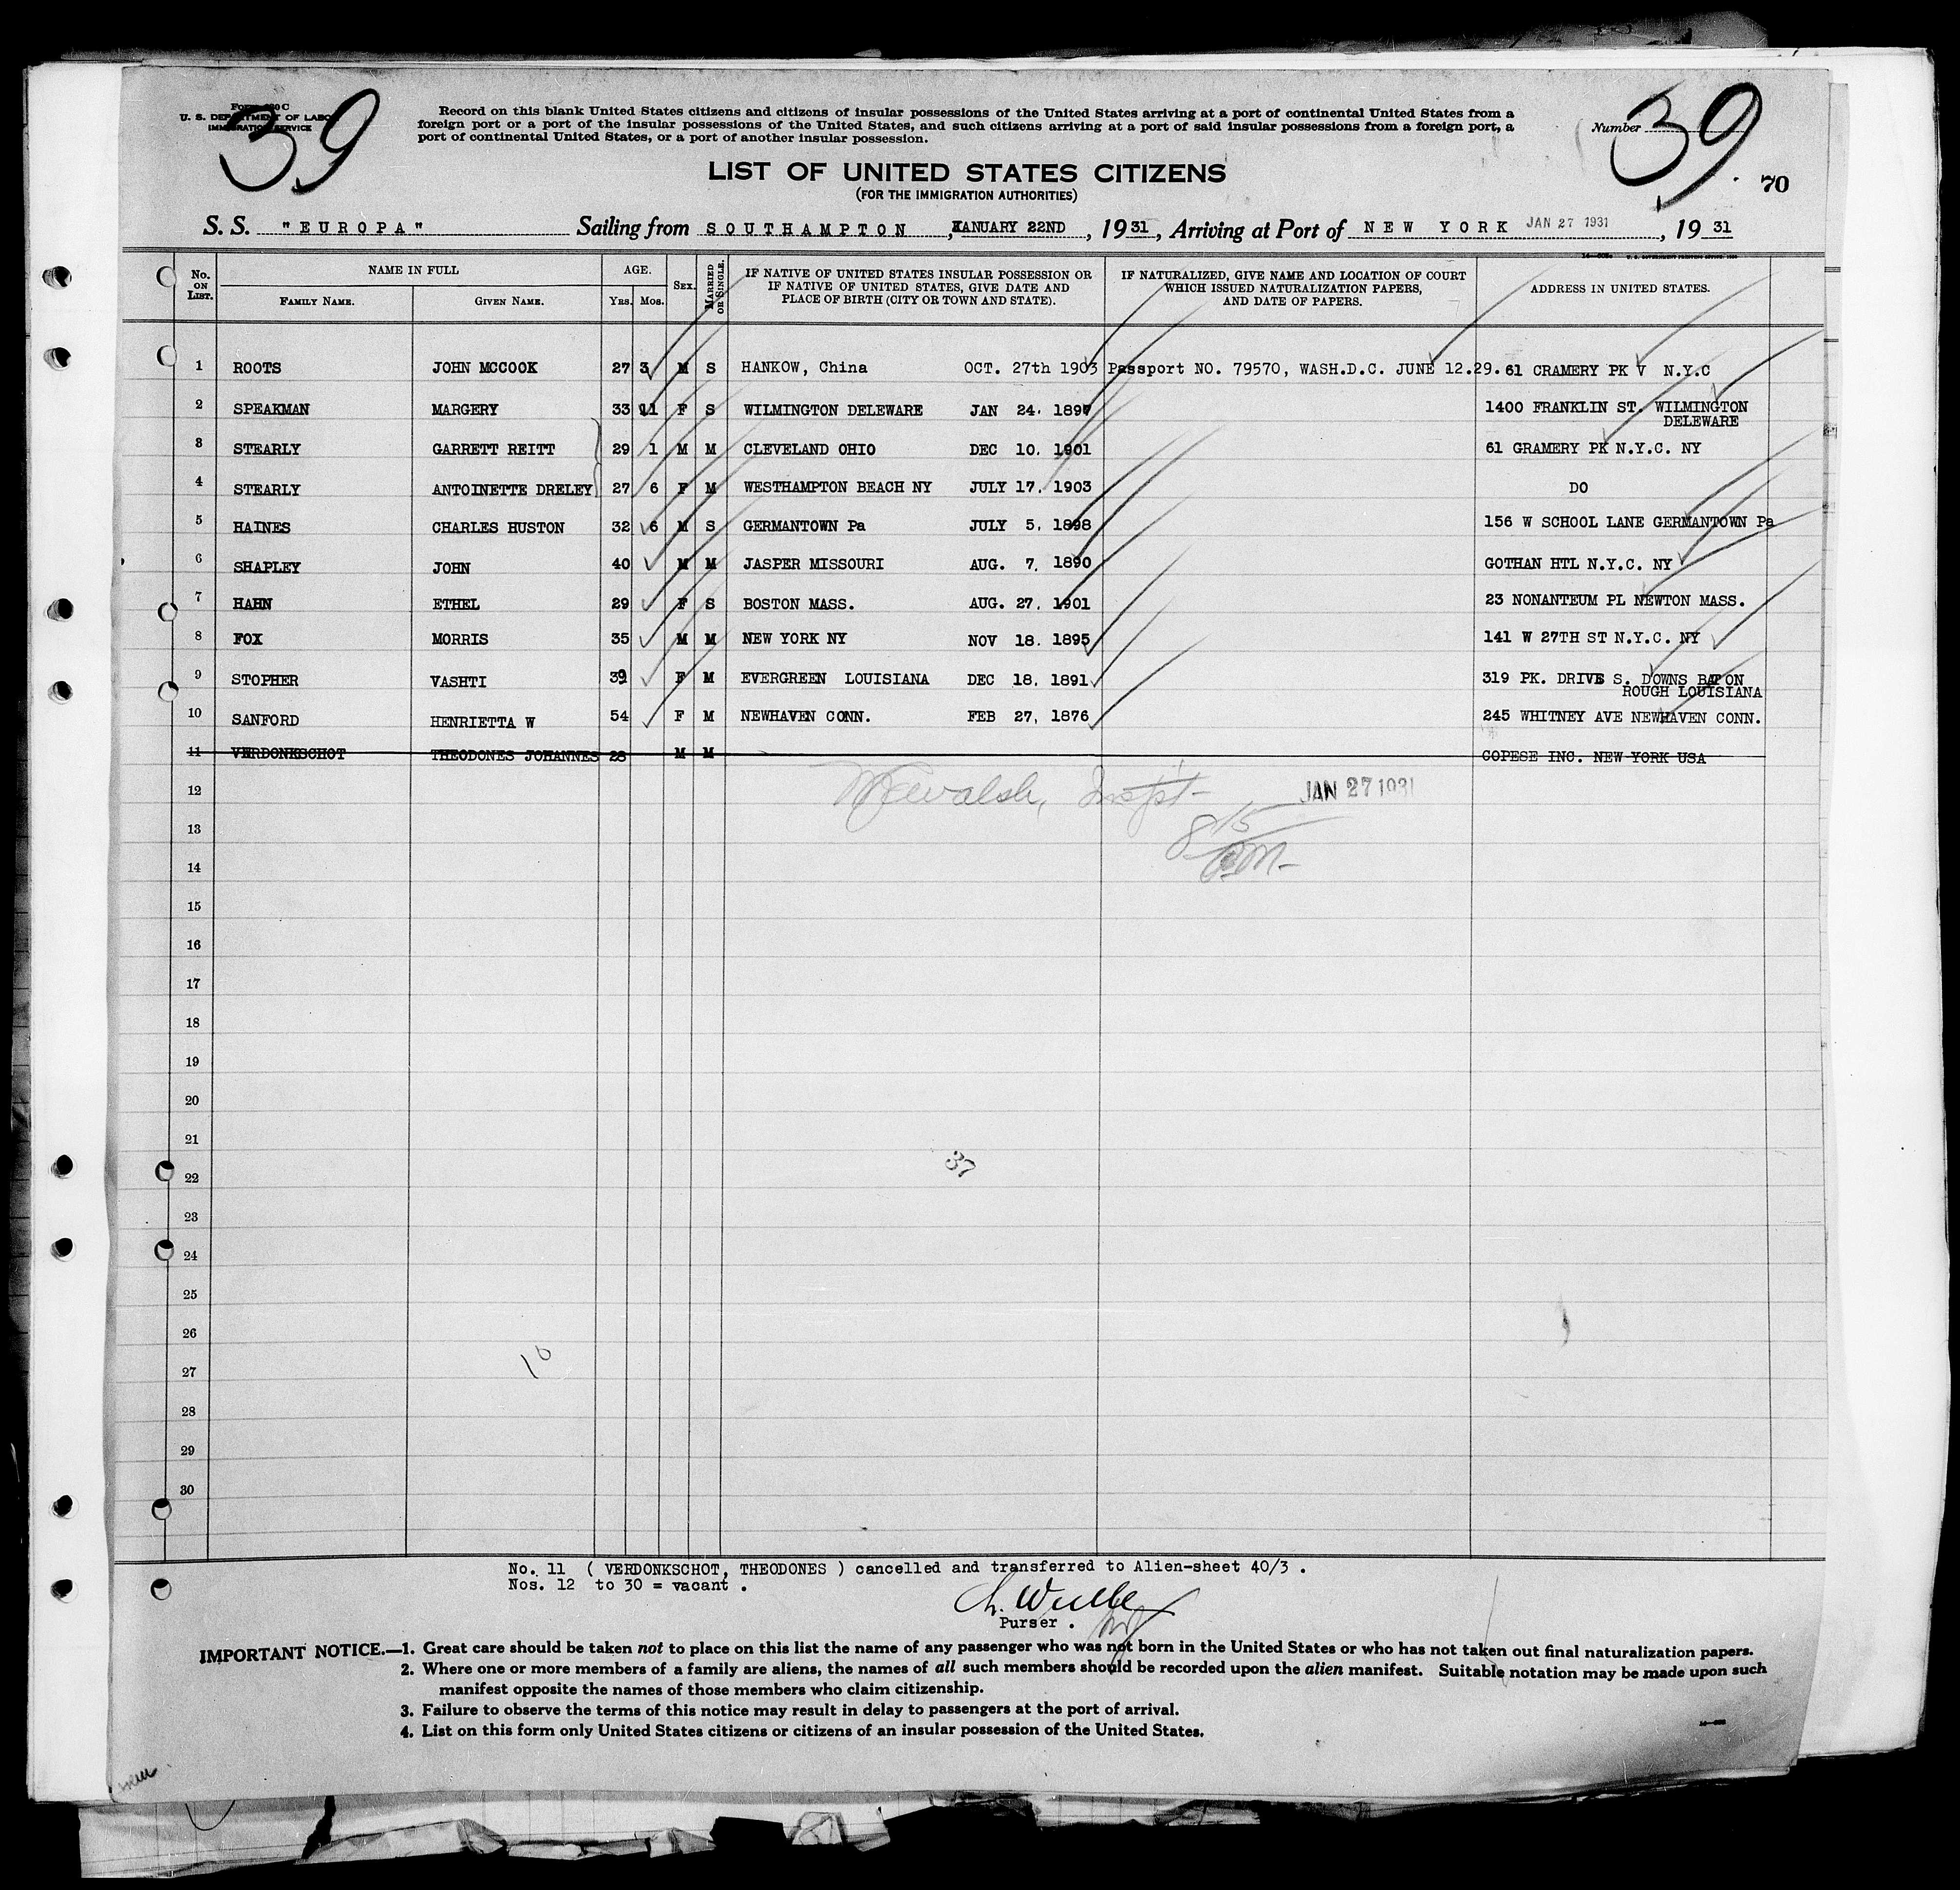 39
Form 630 C
U. S. DEPARTMENT OF LABOR
IMMIGRATION SERVICE
Record on this blank United States citizens and citizens of insular possessions of the United States arriving at a port of continental United States from a
foreign port or a port of the insular possessions of the United States, and such citizens arriving at a port of said insular possessions from a foreign port, a
port of continental United States, or a port of another insular possession.
Number 39
70
LIST OF UNITED STATES CITIZENS
(FOR THE IMMIGRATION AUTHORITIES)
S. S. "EUROPA" Sailing from SOUTHAMPTON, JANUARY 22ND, 1931, Arriving at Port of NEW YORK JAN 27 1931, 1931
No. ON LIST. NAME IN FULL FAMILY NAME. GIVEN NAME. AGE. Yrs. Mos. SEX. MARRIED OR SINGLE. IF NATIVE OF UNITED STATES INSULAR POSSESSION OR IF NATIVE OF UNITED STATES, GIVE DATE AND PLACE OF BIRTH (CITY OR TOWN AND STATE). IF NATURALIZED, GIVE NAME AND LOCATION OF COURT WHICH ISSUED NATURALIZATION PAPERS, AND DATE OF PAPERS. ADDRESS IN UNITED STATES.
1 ROOTS JOHN MCCOOK 27 3 M S HANKOW, China OCT. 27th 1903 Passport NO. 79570, WASH.D.C. JUNE 12.29. 61 CRAMERY PK V N.Y.C
2 SPEAKMAN MARGERY 33 11 F S WILMINGTON DELEWARE JAN 24. 1897 1400 FRANKLIN ST. WILMINGTON
DELEWARE
3 STEARLY GARRETT REITT 29 1 M M CLEVELAND OHIO DEC 10. 1901 61 GRAMERY PK N.Y.C. NY
4 STEARLY ANTOINETTE DRELEY 27 6 F M WESTHAMPTON BEACH NY JULY 17. 1903 DO
5 HAINES CHARLES HUSTON 32 6 M S GERMANTOWN Pa JULY 5. 1898 156 W SCHOOL LANE GERMANTOWN Pa
6 SHAPLEY JOHN 40 M M JASPER MISSOURI AUG. 7. 1890 GOTHAN HTL N.Y.C. NY
7 HAHN ETHEL 29 F S BOSTON MASS. AUG. 27. 1901 23 NONANTEUM PL NEWTON MASS.
8 FOX MORRIS 35 M M NEW YORK NY NOV 18. 1895 141 W 27TH ST N.Y.C. NY
9 STOPHER VASHTI 39 F M EVERGREEN LOUISIANA DEC 18. 1891 319 PK. DRIVE S. DOWNS BATON
ROUGH LOUISIANA
10 SANFORD HENRIETTA W 54 F M NEWHAVEN CONN. FEB 27, 1876 245 WHITNEY AVE NEWHAVEN CONN.
11 VERDONKSCHOT THEODONES JOHANNES 28 M M COPESE INC. NEW YORK USA
12 Walsh, Inspt- JAN 27 1931
13 8 15
14
15
16
17
18
19
20
21
22 37
23
24
25
26
27 10
28
29
30
No. 11 ( VERDONKSCHOT, THEODONES ) cancelled and transferred to Alien-sheet 40/3 .
Nos. 12 to 30 = vacant .
Purser .
IMPORTANT NOTICE.—1. Great care should be taken not to place on this list the name of any passenger who was not born in the United States or who has not taken out final naturalization papers.
2. Where one or more members of a family are aliens, the names of all such members should be recorded upon the alien manifest. Suitable notation may be made upon such
manifest opposite the names of those members who claim citizenship.
3. Failure to observe the terms of this notice may result in delay to passengers at the port of arrival.
4. List on this form only United States citizens or citizens of an insular possession of the United States.